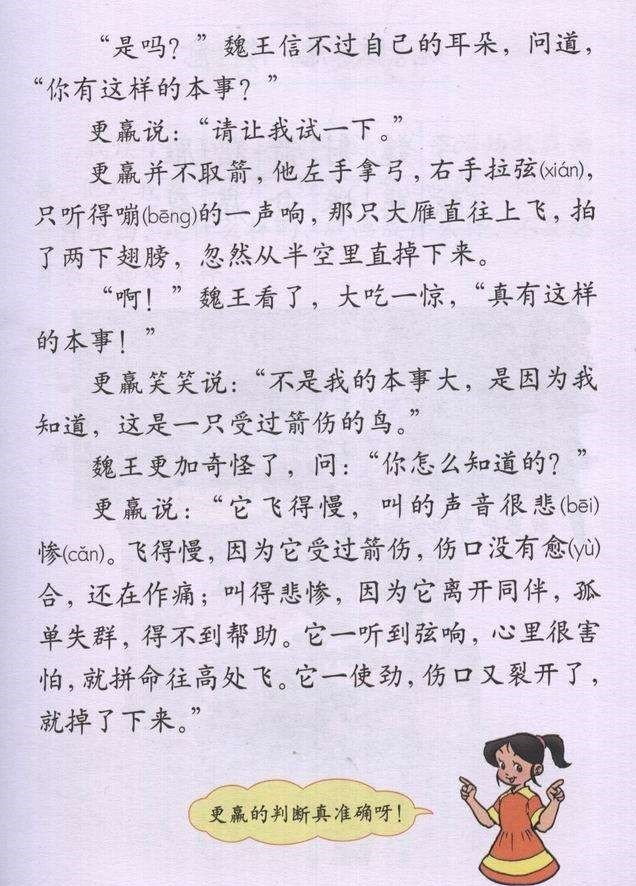 “是吗？”魏王信不过自己的耳朵，问道，
“你有这样的本事？”
更羸说：“请让我试一下。”
更羸并不取箭，他左手拿弓，右手拉弦(xián)，
只听得嘣(bēng)的一声响，那只大雁直往上飞，拍
了两下翅膀，忽然从半空里直掉下来。
“啊！”魏王看了，大吃一惊，“真有这样
的本事！”
更羸笑笑说：“不是我的本事大，是因为我
知道，这是一只受过箭伤的鸟。”
魏王更加奇怪了，问：“你怎么知道的？”
更羸说：“它飞得慢，叫的声音很悲(bēi)
惨(cǎn)。飞得慢，因为它受过箭伤，伤口没有愈(yù)
合，还在作痛；叫得悲惨，因为它离开同伴，孤
单失群，得不到帮助。它一听到弦响，心里很害
怕，就拼命往高处飞。它一使劲，伤口又裂开了，
就掉了下来。”
更羸的判断真准确呀！